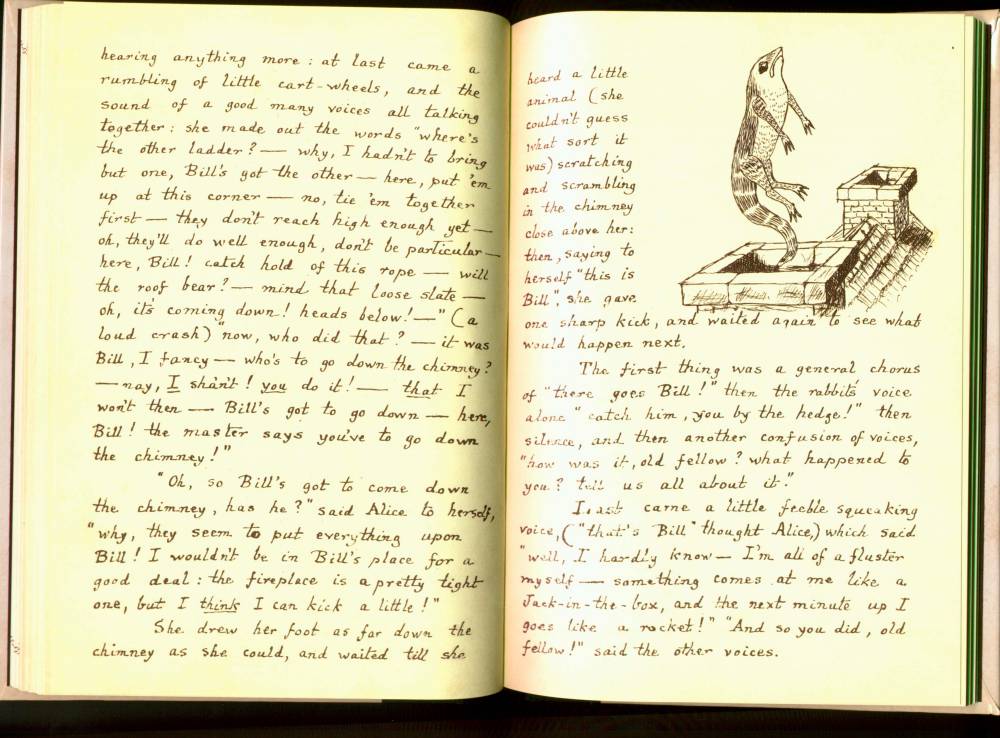 hearing anything more : at last came a
rumbling of little cart-wheels, and the
sound of a good many voices all talking
together : she made out the words "where's
the other ladder? — why, I hadn't to bring
but one, Bill's got the other — here, put 'em
up at this corner — no, tie 'em together
first — they don't reach high enough yet —
oh, they'll do well enough, don't be particular —
here, Bill! catch hold of this rope — will
the roof bear? — mind that loose slate —
oh, it's coming down! heads below! —" (a
loud crash) "now, who did that? — it was
Bill, I fancy — who's to go down the chimney?
— nay, I shan't! you do it! — that I
won't then — Bill's got to go down — here,
Bill! the master says you've to go down
the chimney!"
"Oh, so Bill's got to come down
the chimney, has he?" said Alice to herself,
"why, they seem to put everything upon
Bill! I wouldn't be in Bill's place for a
good deal : the fireplace is a pretty tight
one, but I think I can kick a little!"
She drew her foot as far down the
chimney as she could, and waited till she
heard a little
animal (she
couldn't guess
what sort it
was) scratching
and scrambling
in the chimney
close above her:
then, saying to
herself "this is
Bill", she gave
one sharp kick, and waited again to see what
would happen next.
The first thing was a general chorus
of "there goes Bill!" then the rabbit's voice
alone "catch him, you by the hedge!" then
silence, and then another confusion of voices,
"how was it, old fellow? what happened to
you? tell us all about it."
Last came a little feeble squeaking
voice, ("that's Bill" thought Alice,) which said
"well, I hardly know — I'm all of a fluster
myself — something comes at me like a
Jack-in-the-box, and the next minute up I
goes like a rocket!" "And so you did, old
fellow!" said the other voices.